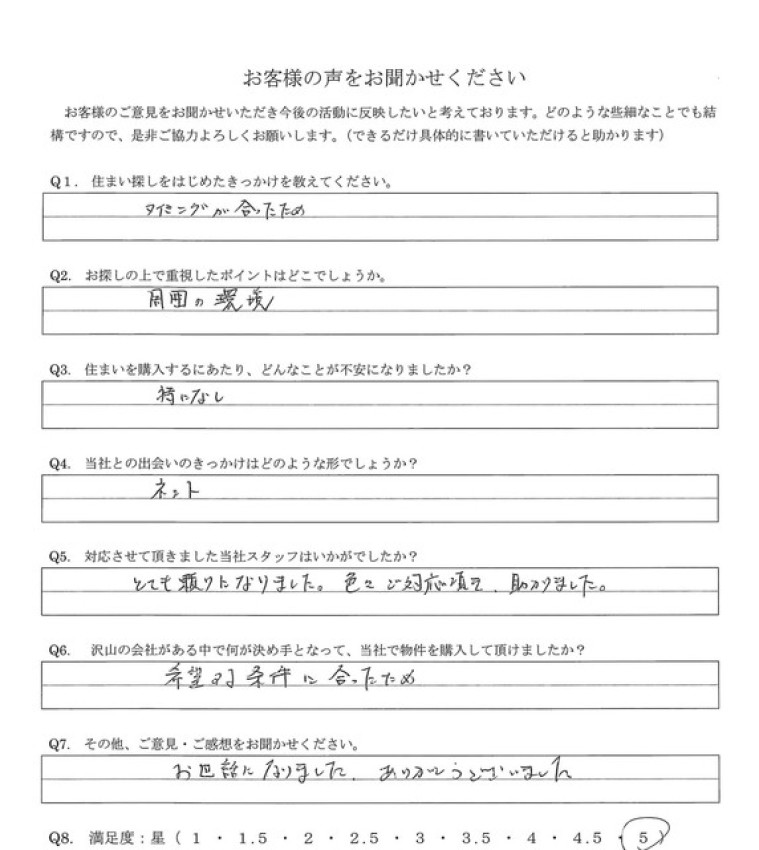 お客様の声をお聞かせください
お客様のご意見をお聞かせいただき今後の活動に反映したいと考えております。どのような些細なことでも結
構ですので、是非ご協力よろしくお願いします。（できるだけ具体的に書いていただけると助かります）
Q1. 住まい探しをはじめたきっかけを教えてください。
タイミングが合ったため
Q2. お探しの上で重視したポイントはどこでしょうか。
周囲の環境
Q3. 住まいを購入するにあたり、どんなことが不安になりましたか？
特になし
Q4. 当社との出会いのきっかけはどのような形でしょうか？
ネット
Q5. 対応させて頂きました当社スタッフはいかがでしたか？
とても頼りになりました。色々ご対応頂き、助かりました。
Q6. 沢山の会社がある中で何が決め手となって、当社で物件を購入して頂けましたか？
希望する条件に合ったため
Q7. その他、ご意見・ご感想をお聞かせください。
お世話になりました。ありがとうございました
Q8. 満足度：星（ 1 ・ 1.5 ・ 2 ・ 2.5 ・ 3 ・ 3.5 ・ 4 ・ 4.5 ・ 5 ）